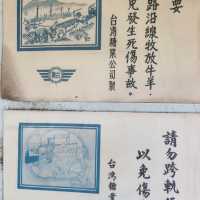 要
路沿線牧放牛羊，
免發生死傷事故。
台灣糖業公司製
請勿跨軌
以免傷
台灣糖業